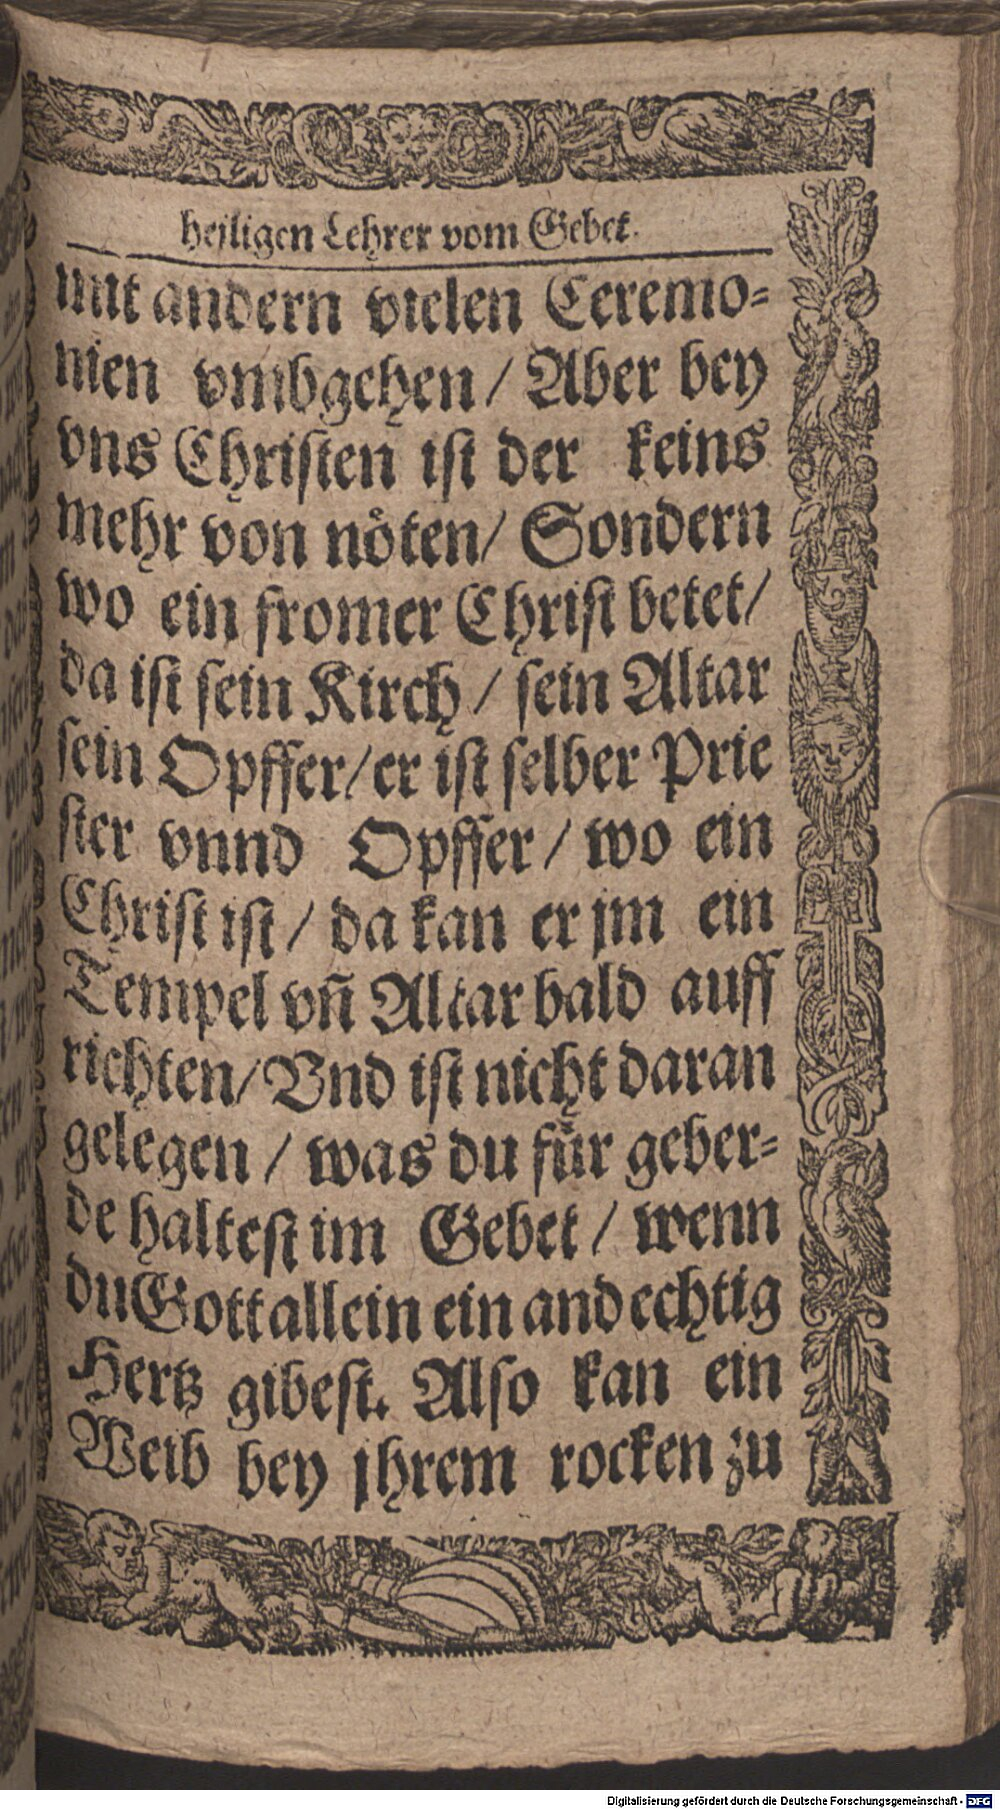 heiligen Lehrer vom Gebet.
mit andern vielen Ceremo-
nien vmbgehen / Aber bey
vns Christen ist der keins
mehr von nöten / Sondern
wo ein fromer Christ betet /
da ist sein Kirch / sein Altar
sein Opffer / er ist selber Prie
ster vnnd Opffer / wo ein
Christ ist / da kan er jm ein
Tempel vñ Altar bald auff
richten / Vnd ist nicht daran
gelegen / was du für geber-
de haltest im Gebet / wenn
du Gott allein ein andechtig
Hertz gibest. Also kan ein
Weib bey jhrem rocken zu
Digitalisierung gefördert durch die Deutsche Forschungsgemeinschaft - DFG